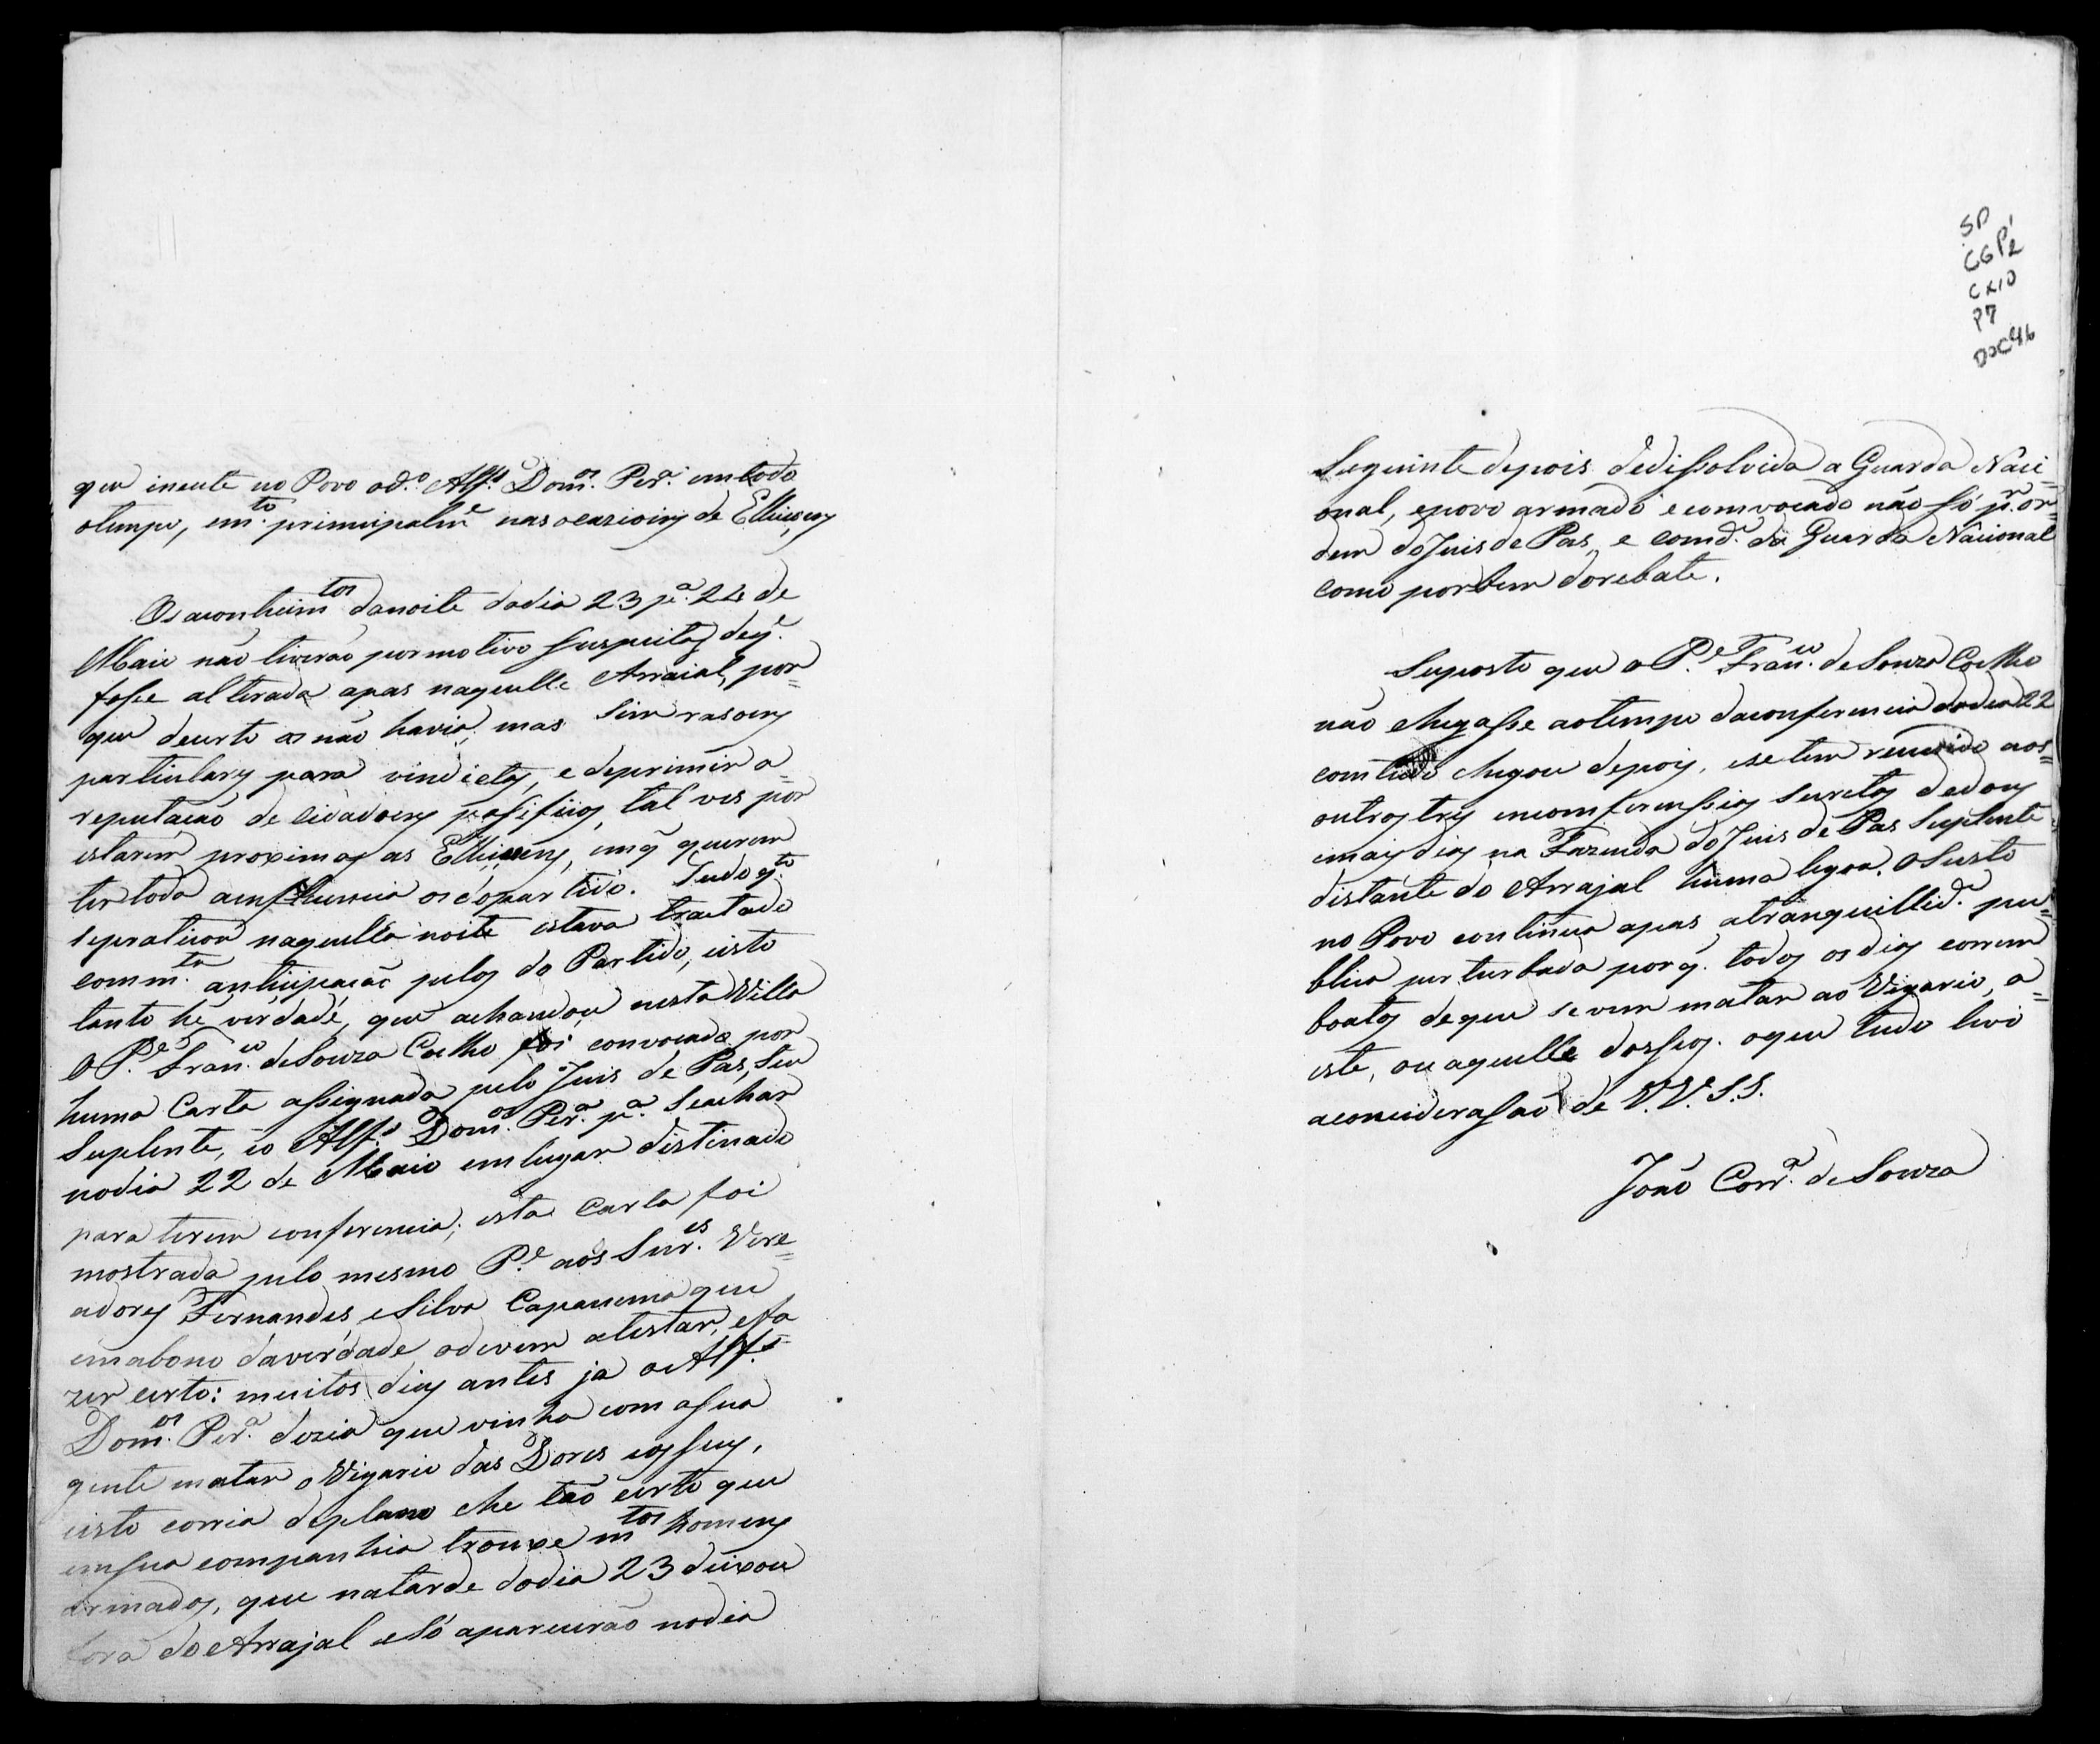 que incute no Povo o d.º Alf.s Dom.os Per.ª em todo
o tempo, e m.to principalm.e nas ocazioins de Elleisoens
Os acontecim.tos da noite do dia 23 p.ª 24 de
Maio não tiverão por motivo suspeitas de q.e
fosse alterada a pas naquelle Arraial, por=
que decerto as não havia, mas sim rasoens
particulares para vindictas, e deprimir a
reputação de cidadoens passificos, tal ves por
estarem proximas as Elleisoens, em q̃ querem
ter toda a influencia os do partido. Tudo q.to
se praticou naquella noite estava tractado
com m.ta anticipação pelos do Partido, e isto
tanto hé verdade, que achandose nesta Villa
o P.e Fran.co de Souza Coelho foi convocado por
huma Carta assignada pelo Juis de Pas, seu
Suplente, e o Alf.s Dom.os Per.ª p.ª se achar
no dia 22 de Maio em lugar distinado
para terem conferencia; esta Carta foi
mostrada pelo mesmo P.e aos Snr.es Vere=
adores Fernandes, e Silva Capanema que
em abono da verdade o devem atestar, e fa
zer certo: muitos dias antes ja o Alf.s
Dom.os Per.ª dezia que vinha com a sua
gente matar o Vigario das Dores e os seus,
e isto corria de plano e he tão certo que
em sua companhia trouxe m.tos homens
armados, que na tarde do dia 23 deixou
fora do Arrajal e só aparecerão no dia
SP
CGP1
2
CX10
P7
DOC46
Seguinte depois de dissolvida a Guarda Naci=
onal, e povo armado e comvocado não só p.r or=
dem do Juis de Pas, e Comd.e da Guarda Nacional
como por bem do rebate.
Suposto que o P.e Fran.co de Souza Coelho
não chegasse ao tempo da conferencia do dia 22
com tudo chegou depois, e se tem reunido aos
outros tres em comferenssias secretas de dous
e mais dias na Fazenda do Juis de Pas Suplente
distante do Arrajal huma legoa. O Susto
no Povo continua a pas a tranquillid.e pu=
blica perturbada por q̃. todos os dias correm
boatos de que se vem matar ao Vigario, a
este, ou aquelle dos seos. o que tudo levo
a conciderassão de V.V. S.S.
João Corr.ª de Souza